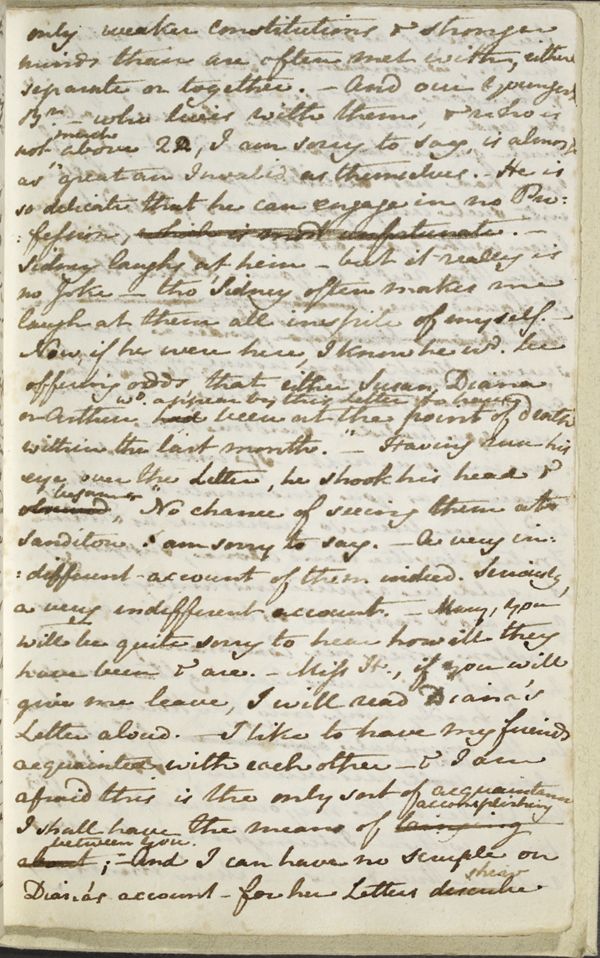 only weaker constitutions & stronger
minds than are often met with, either
separate or together. – And our Youngest
Br. – who lives with them, & who is
much
not above 22, I am sorry to say, is almost
as great an Invalid as themselves. – He is
so delicate that he can engage in no Pro:
:fession, which is most unfortunate. –
Sidney laughs at him – but it really is
no Joke – tho' Sidney often makes me
laugh at them all inspite of myself. –
Now, if he were here, I know he wd. be
offering odds, that either Susan, Diana
wd. appear by this letter to have
or Arthur had been at the point of death
within the last month." – Having run his
eye over the Letter, he shook his head &
began
"No chance of seeing them at
Sanditon I am sorry to say. – A very in:
:different account of them indeed. Seriously,
a very indifferent account. – Mary, you
will be quite sorry to hear how ill they
have been & are. – Miss H., if you will
give me leave, I will read Diana's
Letter aloud. – I like to have my friends
acquainted with each other – & I am
afraid this is the only sort of acquaintance
accomplishing
I shall have the means of bringing
between you.
about; – And I can have no scruple on
Diana's account – for her Letters describe
shew